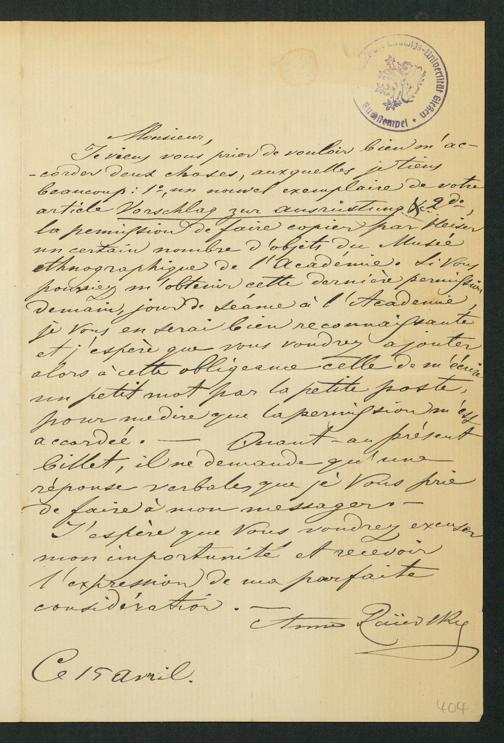 Monsieur,
Je viens vous prier de vouloir bien m'ac-
-corder deux choses, auxquelles je tiens
beaucoup: 1º, un nouvel exemplaire de votre
article Vorschlag zur ausrüstung & 2 de,
la permission de faire copier par
un certain nombre d'objets du Musée
ethnographique de l'Académie. Si Vous
pouviez m'obtenir cette dernière permission
demain, jour de séance à l'Academie,
je Vous en serai bien reconnaissante
et j'espère que vous voudrez ajouter
alors à cette obligeance celle de m'écrire
un petit mot par la petite poste,
pour me dire que la permission m'est
accordée. — Quant-au présent
billet, il ne demande qu'une
réponse verbale, que je Vous prie
de faire à mon messager. -
J'espère que Vous voudrez excuser
mon importunité et recevoir
l'expression de ma parfaite
considération. —
Anna
Ce 15 avril.
404